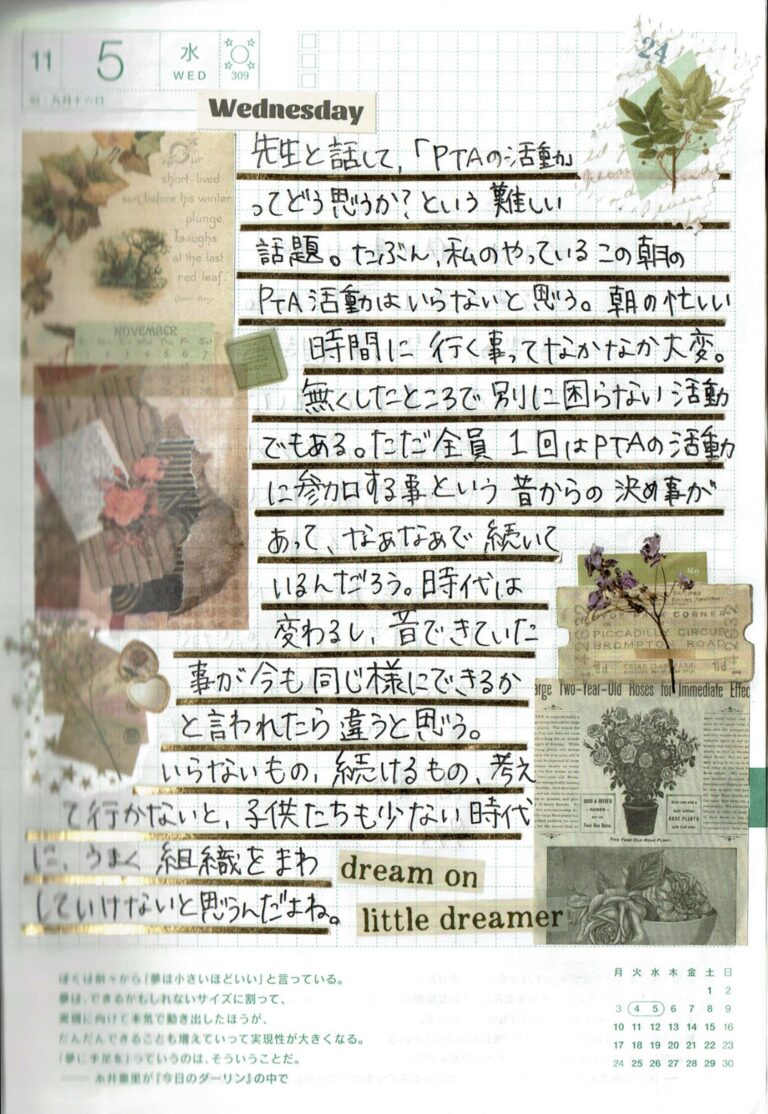 11
5
水
WED
309
旧・九月十六日
24
Wednesday
our
short-lived
sun, before his winter
plunge,
Laughs
at the last
red leaf.
NOVEMBER
先生と話して、「PTAの活動
ってどう思うか？という 難しい
話題。たぶん、私のやっているこの朝の
PTA活動はいらないと思う。朝の忙しい
時間に 行く事ってなかなか大変。
無くしたところで別に困らない活動
でもある。ただ全員 1回はPTAの活動
に参加する事という 昔からの 決め事が
あって、なあなあで 続いて
いるんだろう。時代は
変わるし、昔できていた
事が今も同じ様にできるか
と言われたら違うと思う。
いらないもの、続けるもの、考え
て行かないと、子供たちも少ない時代
に、うまく 組織をまわ
していけないと思うんだよね。
May
CORNER
PICCADILLY CIRCUS
BROMPTON ROAD
142632
142632
arge Two-Year-Old Roses for Immediate Effec
ROSE PLANTS
THE TWO YEAR OLD ROSE PLANT.
dream on
little dreamer
ぼくは前々から「夢は小さいほどいい」と言っている。
夢は、できるかもしれないサイズに割って、
実現に向けて本気で動き出したほうが、
だんだんできることも増えていって実現性が大きくなる。
「夢に手足を」っていうのは、そういうことだ。
── 糸井重里が『今日のダーリン』の中で
月 火 水 木 金 土 日
1 2
3 4 5 6 7 8 9
10 11 12 13 14 15 16
17 18 19 20 21 22 23
24 25 26 27 28 29 30